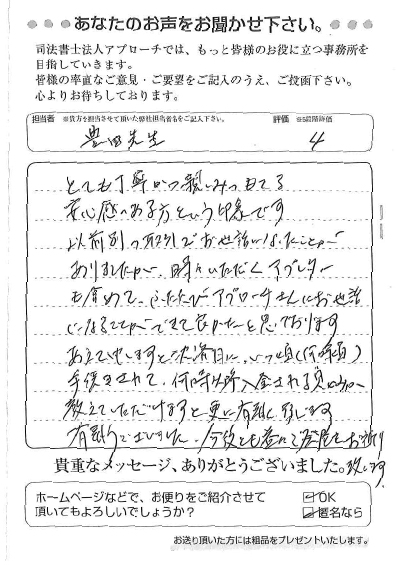 あなたのお声をお聞かせ下さい。
司法書士法人アプローチでは、もっと皆様のお役に立つ事務所を
目指していきます。
皆様の率直なご意見・ご要望をご記入のうえ、ご投函下さい。
心よりお待ちしております。
担当者 ※貴方を担当させて頂いた弊社担当者名をご記入下さい。 評価 ※5段階評価
豊田先生 4
とても丁寧かつ親しみのもてる
安心感のある方という印象です
以前別の取引でお世話になったことが
ありましたが、時々いただくアプレター
も含めて、ふたたびアプローチさんにお世話
になることができて良かったと思っております
あえて申しますと決済日に、いつ頃(何時頃)
手続きされて、何時以降入金される
教えていただけますと更に有難く存じます
有難うございました。今後とも
貴重なメッセージ、ありがとうございました。致します
ホームページなどで、お便りをご紹介させて
頂いてもよろしいでしょうか?
OK
匿名なら
お送り頂いた方には粗品をプレゼントいたします。